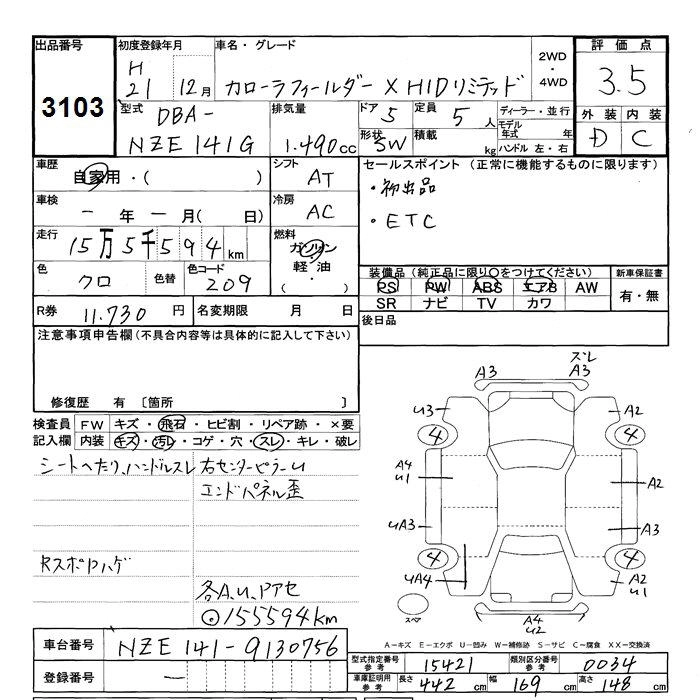 出品番号 初度登録年月 車名・グレード 2WD・4WD 評価点
3103 H21 12月 カローラフィールダー X HIDリミテッド 3.5
型式 DBA-NZE141G 排気量 1.490cc ドア 5 定員 5人 ディーラー・並行 外装 内装
形状 SW 積載 kg モデル年式 年 ハンドル 左・右 D C
車歴 自家用・( ) シフト AT セールスポイント (正常に機能するものに限ります)
・初出品
車検 ー年ー月( 日) 冷房 AC ・ETC
走行 15万5千594km 燃料 ガソリン 軽油 ( ・ )
色 クロ 色替 色コード 209 装備品(純正品に限り○をつけてください) 新車保証書
PS PW ABS エアB AW 有・無
SR ナビ TV カワ
R券 11.730円 名変期限 月 日 後日品
注意事項申告欄(不具合内容等は具体的に記入して下さい)
修復歴 有 〔箇所 〕
検査員 FW キズ・飛石・ヒビ割・リペア跡・×要
記入欄 内装 キズ・汚レ・コゲ・穴・スレ・キレ・破レ
シートへたり、ハンドルスレ 右センターピラーU
エンドパネル歪
Rスポハゲ
各A.U.Pアセ
◎155594km
A3 ズレ A3
U3 A2
4 4
A4 U1 A2
UA3 A3
4 4
UA4 A2 U1
スペア A4 U2
A-キズ E-エクボ U-凹み W-補修跡 S-サビ C-腐食 XX-交換済
車台番号 NZE141-9130756
登録番号 ー
型式指定番号 参考 15421 類別区分番号 参考 0034
車庫証明用 参考 長さ 442cm 幅 169cm 高さ 148cm